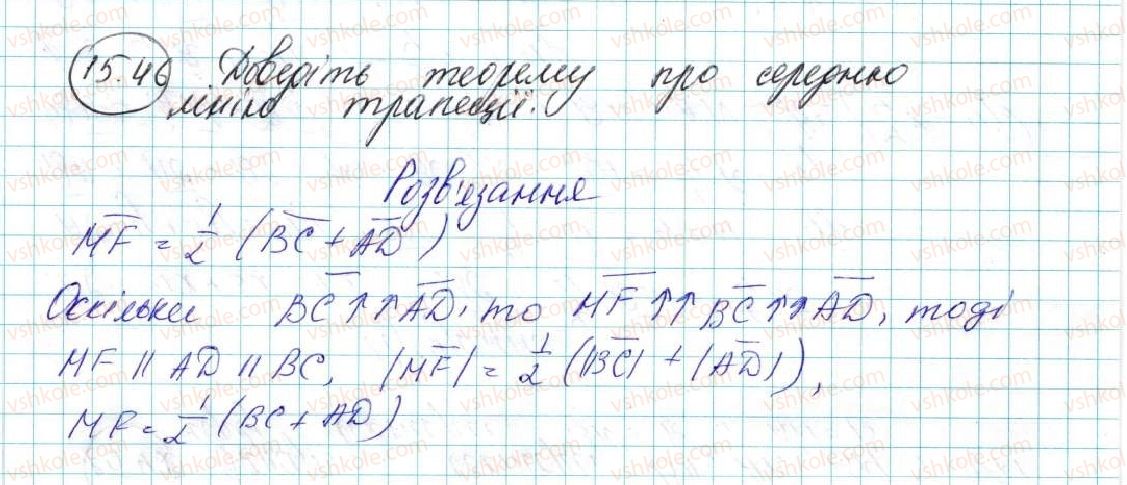 15.46 Доведіть теорему про середню
лінію трапеції.
Розв'язання
$\overline{MF} = \frac{1}{2} (\overline{BC} + \overline{AD})$
Оскільки $\overline{BC} ↑↑ \overline{AD}$, то $\overline{MF} ↑↑ \overline{BC} ↑↑ \overline{AD}$, тоді
MF || AD || BC, $|\overline{MF}| = \frac{1}{2} (|\overline{BC}| + |\overline{AD}|)$,
$MF = \frac{1}{2} (BC + AD)$